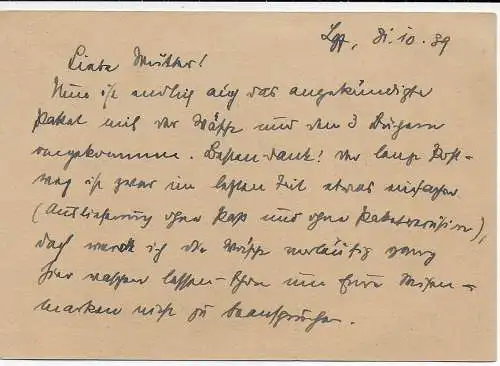 Lpz, 31.10.39
Liebe Mutter!
Nun ist endlich auch das angekündigte
Paket mit der Wäsche und den 3 Büchern
angekommen. Besten Dank! Der lange Post-
weg ist zwar in letzter Zeit etwas einfacher
(Auslieferung ohne Pass und ohne Paketrevision),
doch werde ich die Wäsche vorläufig ganz
hier waschen lassen - schon um Eure Seifen-
marken nicht zu beanspruchen.